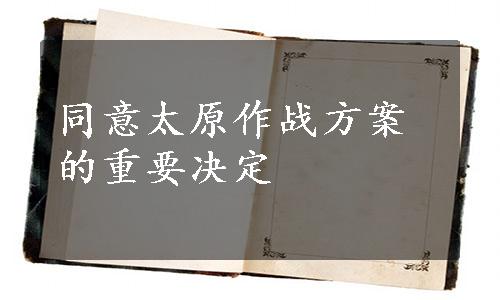 同意太原作战方案
的重要决定